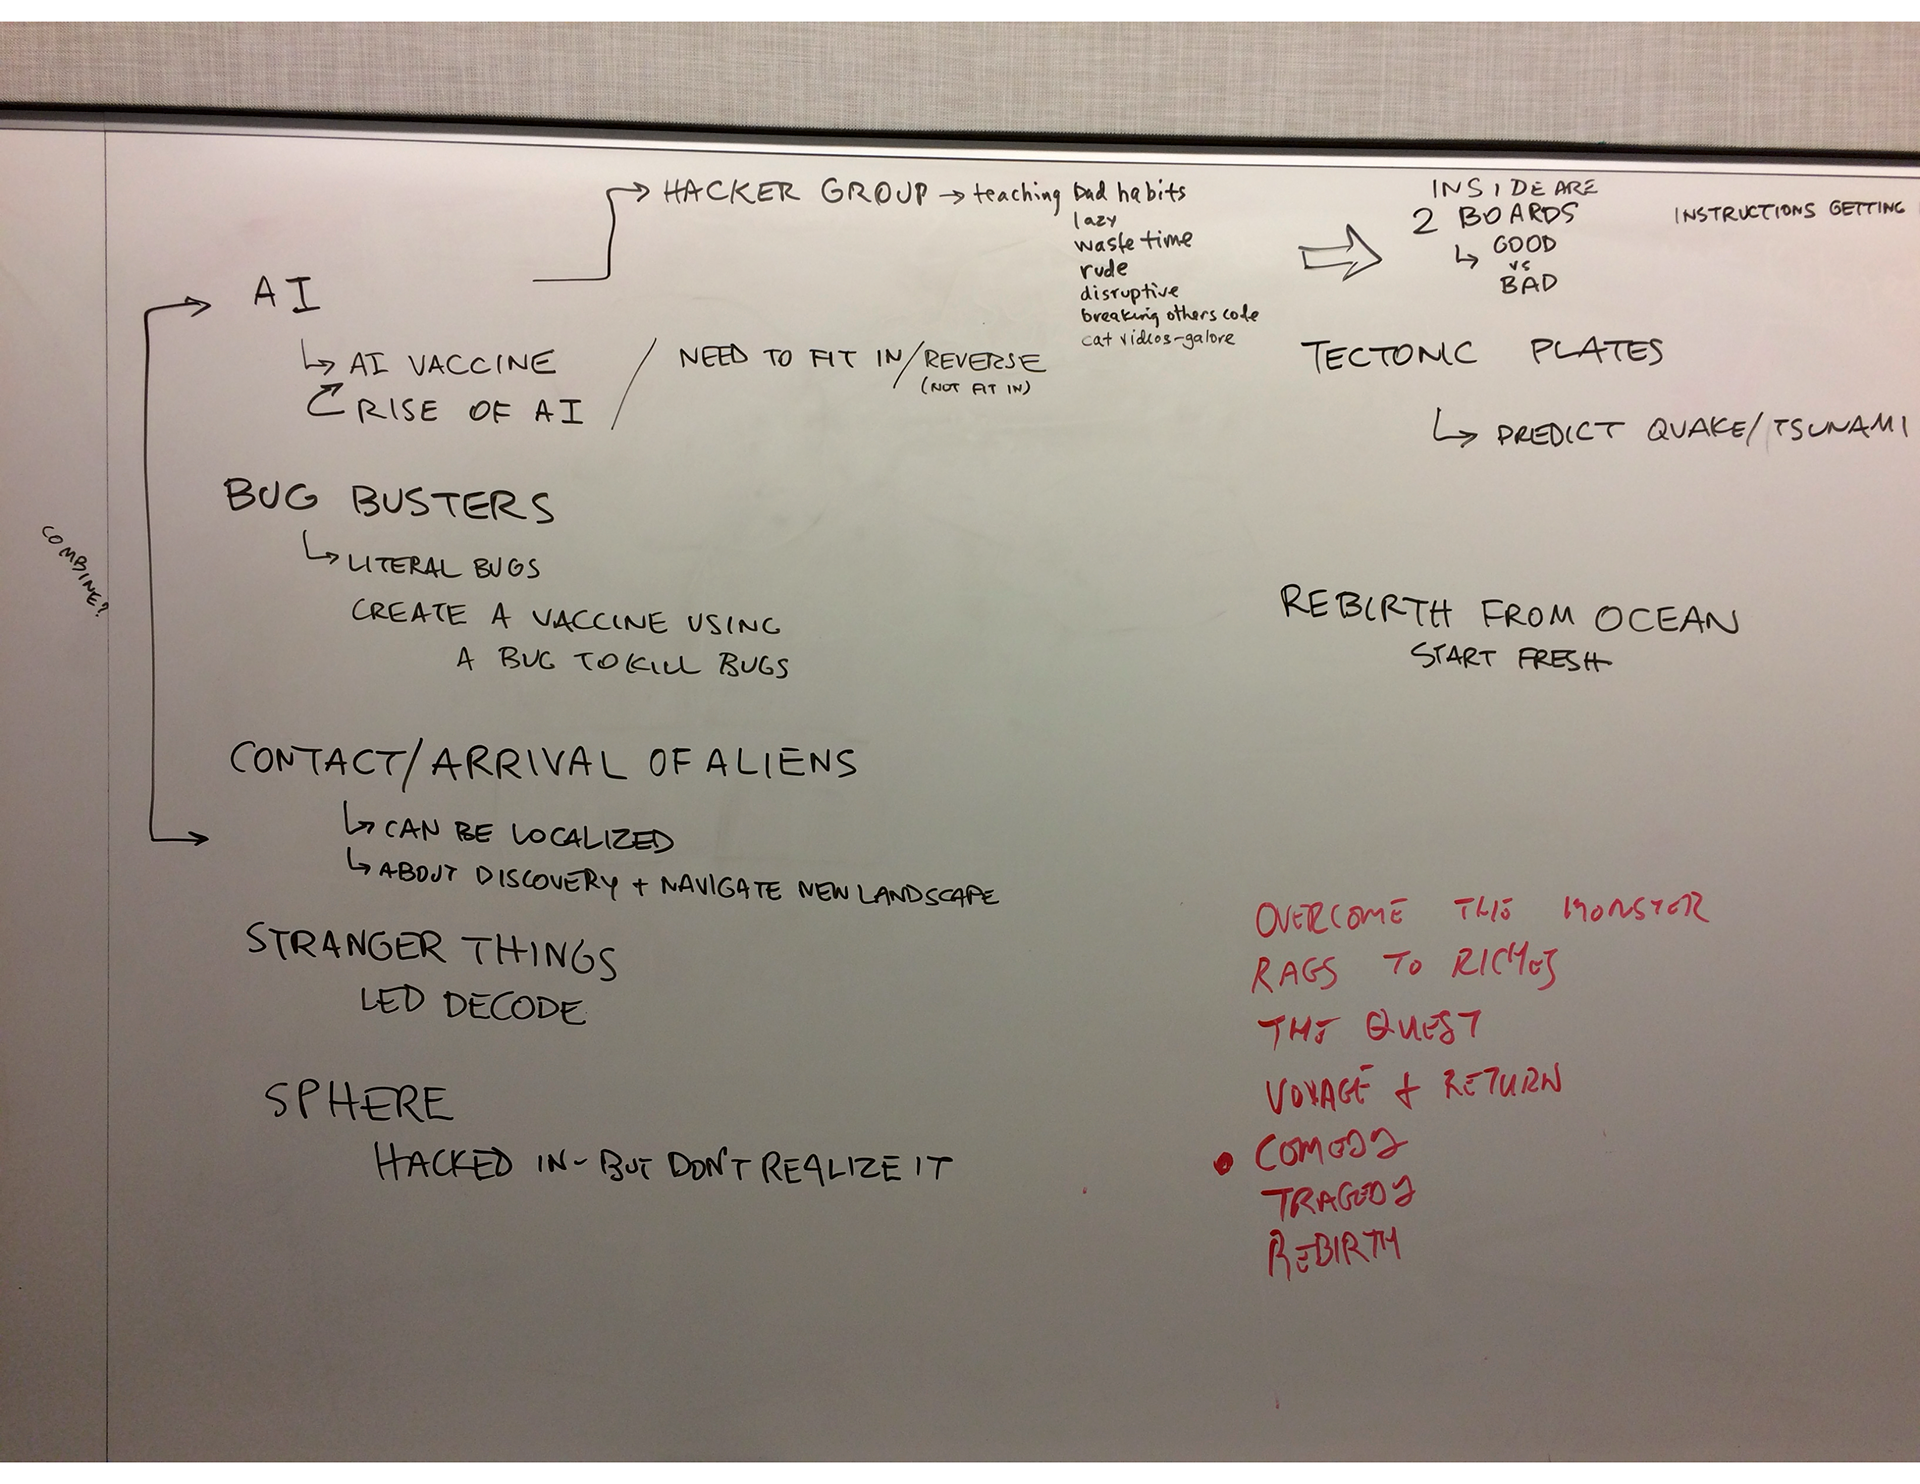 HACKER GROUP → teaching bad habits
lazy
waste time
rude
disruptive
breaking others code
cat videos-galore
INSIDE ARE
2 BOARDS
↳ GOOD
vs
BAD
INSTRUCTIONS GETTING
AI
↳ AI VACCINE
RISE OF AI
/ NEED TO FIT IN/REVERSE
(NOT FIT IN)
TECTONIC PLATES
↳ PREDICT QUAKE/TSUNAMI
COMBINE?
BUG BUSTERS
↳ LITERAL BUGS
CREATE A VACCINE USING
A BUG TO KILL BUGS
REBIRTH FROM OCEAN
START FRESH
CONTACT/ARRIVAL OF ALIENS
↳ CAN BE LOCALIZED
↳ ABOUT DISCOVERY + NAVIGATE NEW LANDSCAPE
STRANGER THINGS
LED DECODE
SPHERE
HACKED IN - BUT DON'T REALIZE IT
OVERCOME THE MONSTER
RAGS TO RICHES
THE QUEST
VOYAGE & RETURN
• COMEDY
TRAGEDY
REBIRTH